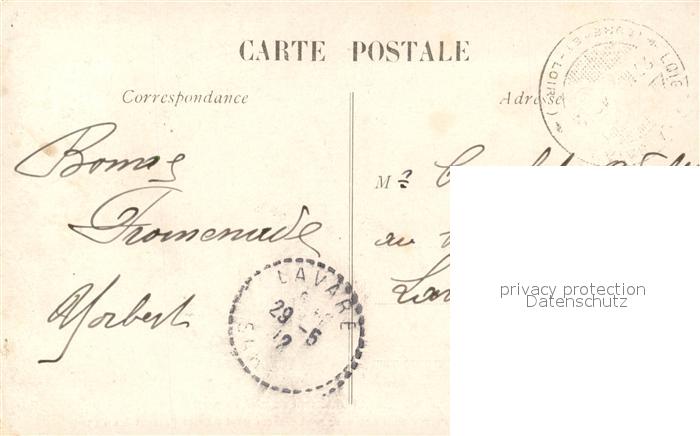 CARTE POSTALE
Correspondance
Adresse
Bonne
Promenade
Norbert
M
au
LAVARÉ
29 - 5
12
(EURE-ET-LOIR)
privacy protection
Datenschutz